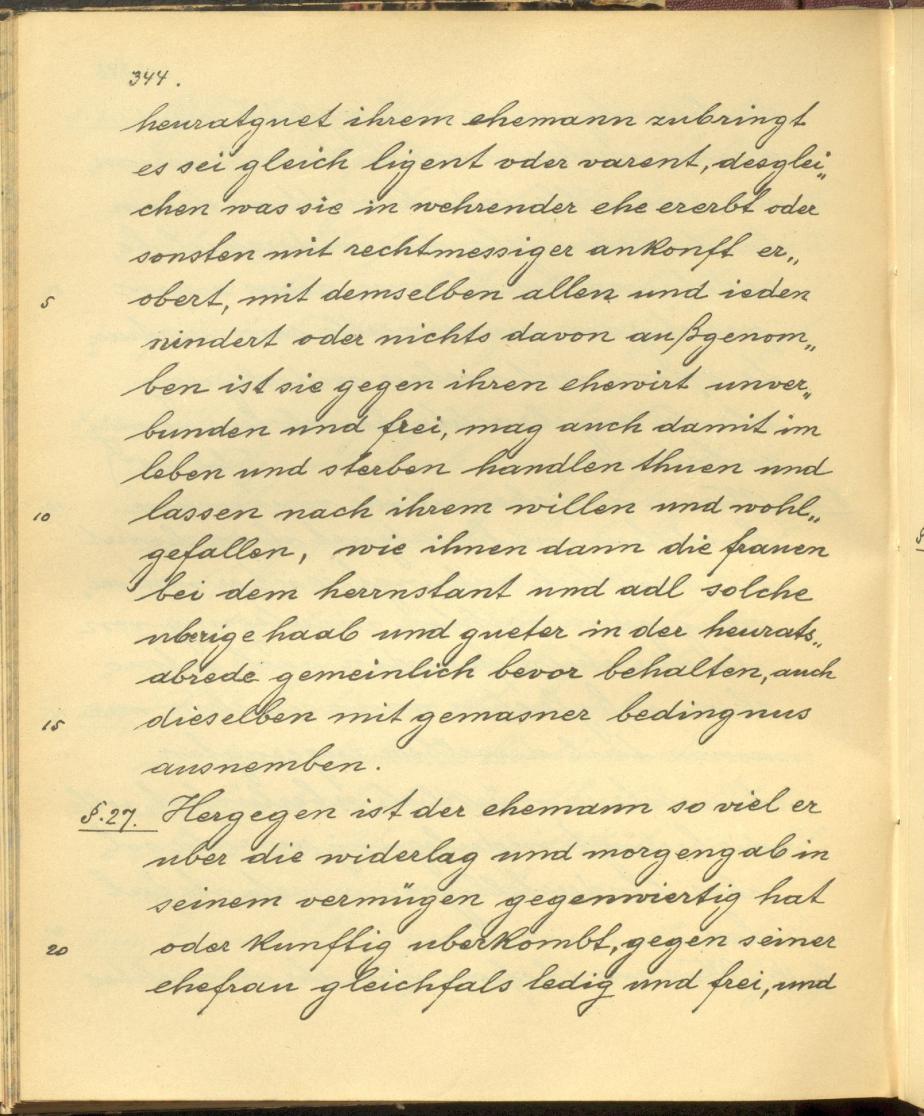 344.
heuratguet ihrem ehemann zubringt
es sei gleich ligent oder varent, desglei„
chen was sie in wehrender ehe ererbt oder
sonsten mit rechtmessiger ankonft er„
5 obert, mit demselben allen und ieden
nindert oder nichts davon außgenom„
ben ist sie gegen ihren ehewirt unver„
bunden und frei, mag auch damit im
leben und sterben handlen thuen und
10 lassen nach ihrem willen und wohl„
gefallen, wie ihnen dann die frauen
bei dem herrnstant und adl solche
uberige haab und gueter in der heurats„
abrede gemeinlich bevor behalten, auch
15 dieselben mit gemasner bedingnus
ausnemben.
§.27. Hergegen ist der ehemann so viel er
uber die widerlag und morgengab in
seinem vermügen gegenwiertig hat
20 oder kunftig uberkombt, gegen seiner
ehefrau gleichfals ledig und frei, und